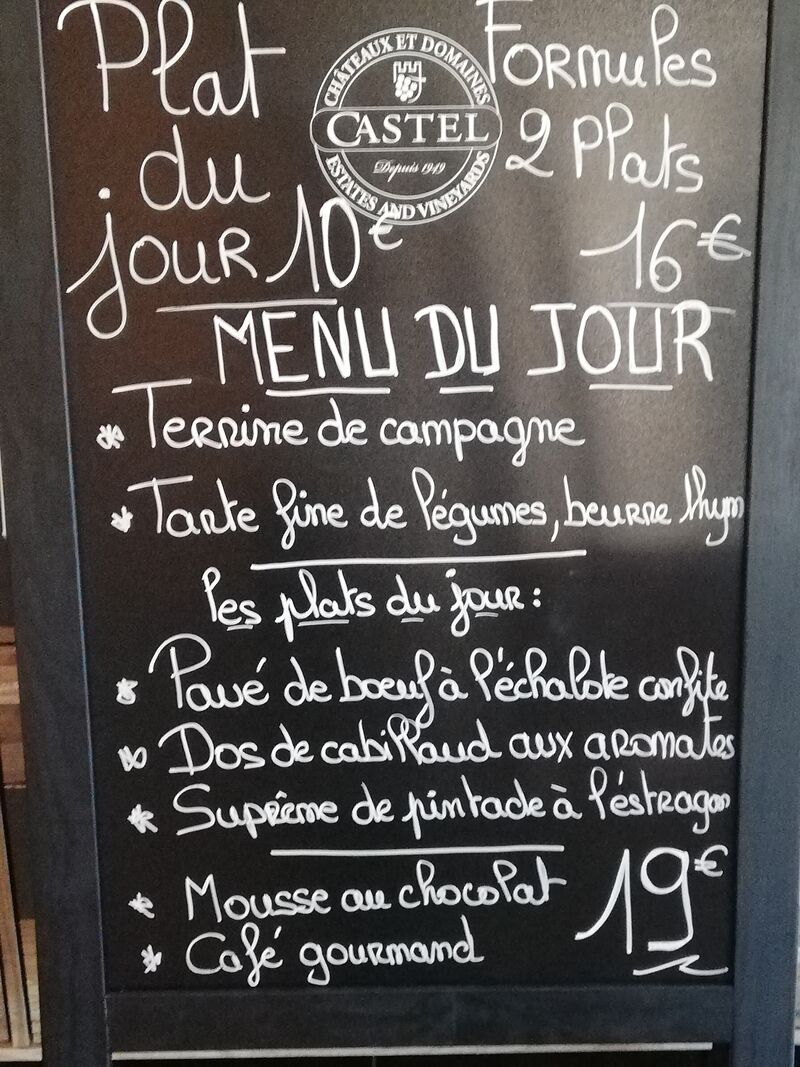 Plat
du
jour 10€
CHÂTEAUX ET DOMAINES
CASTEL
Depuis 1949
ESTATES AND VINEYARDS
Formules
2 Plats
16€
MENU DU JOUR
* Terrine de campagne
* Tarte fine de légumes, beurre thym
les plats du jour :
* Pavé de boeuf à l'échalote confite
* Dos de cabillaud aux aromates
* Suprême de pintade à l'éstragon
* Mousse au chocolat
* Café gourmand
19€